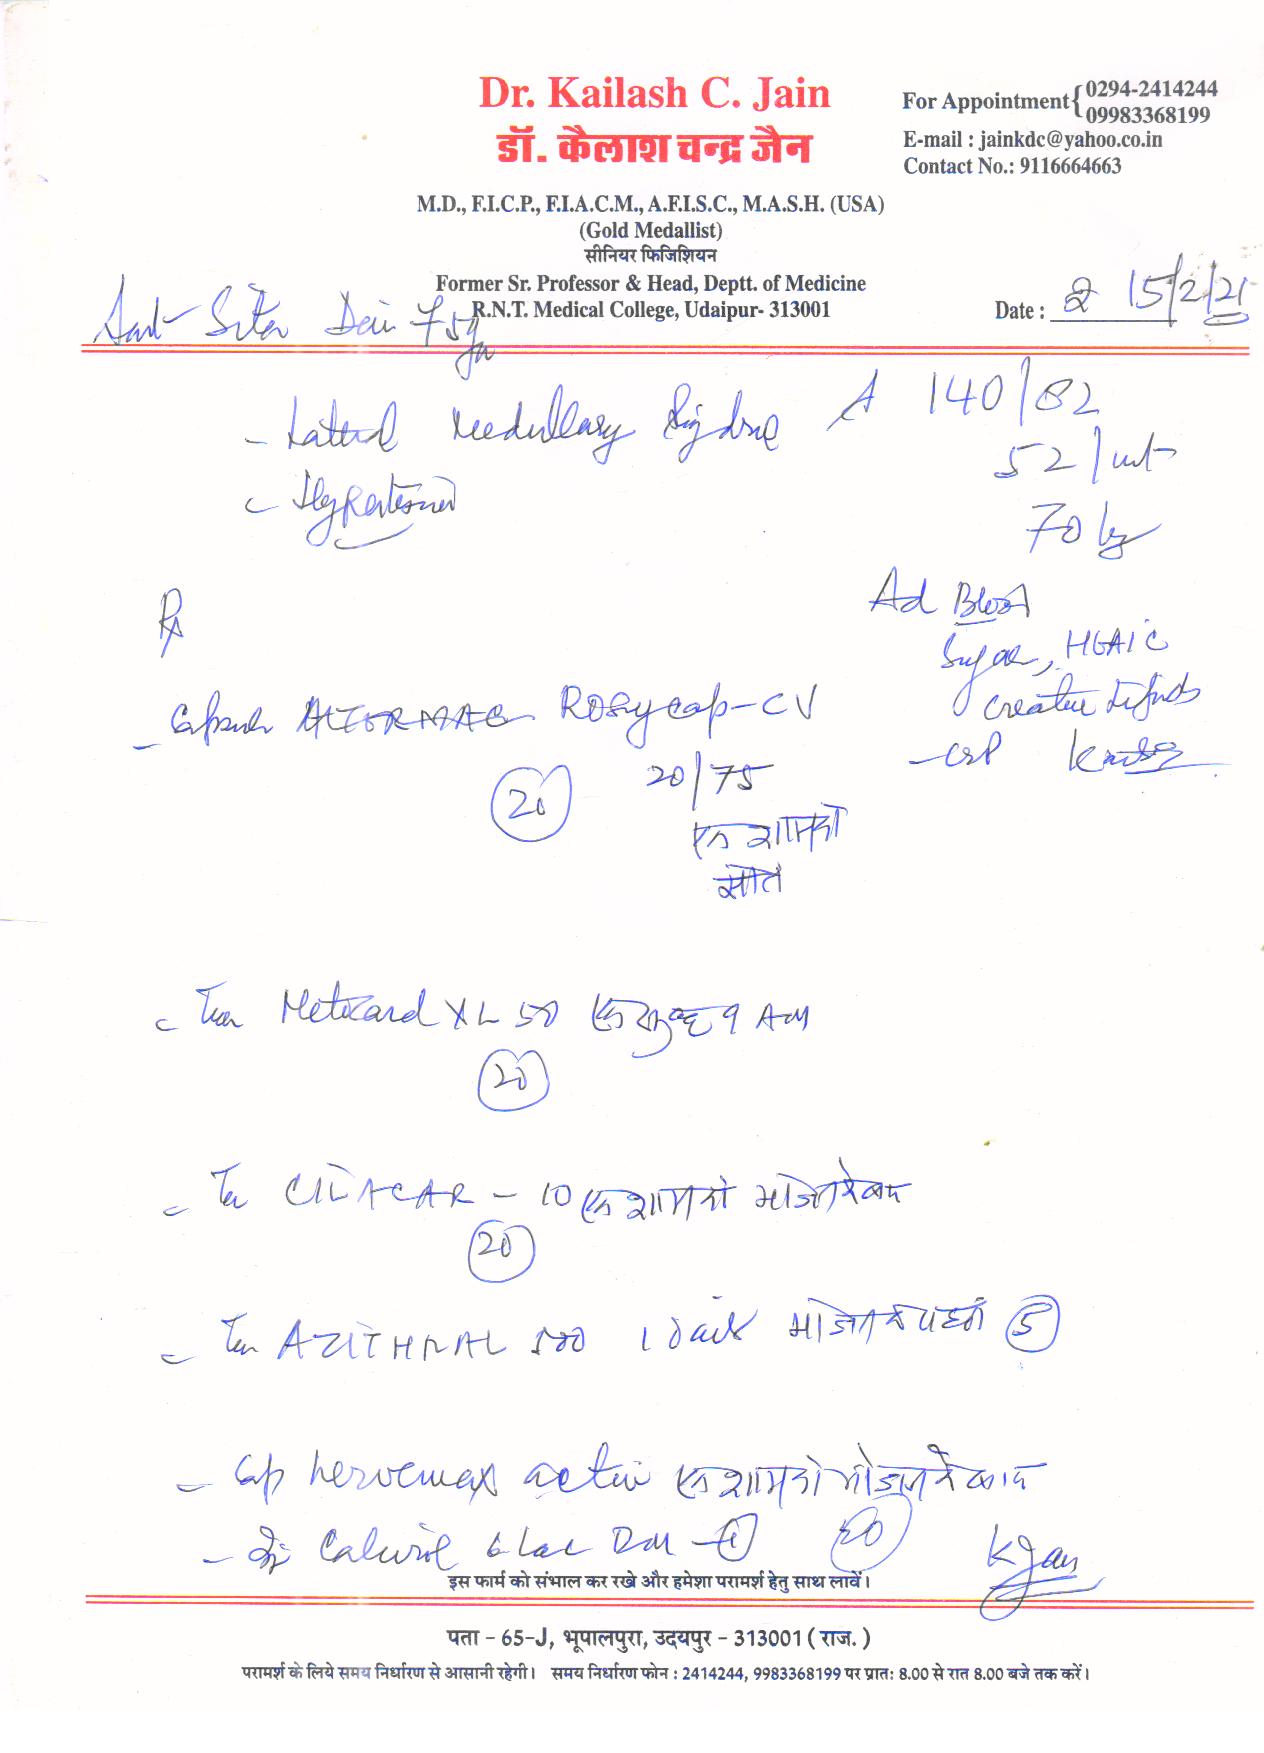 Dr. Kailash C. Jain
डॉ. कैलाश चन्द्र जैन
For Appointment { 0294-2414244
09983368199
E-mail : jainkdc@yahoo.co.in
Contact No.: 9116664663
M.D., F.I.C.P., F.I.A.C.M., A.F.I.S.C., M.A.S.H. (USA)
(Gold Medallist)
सीनियर फिजिशियन
Former Sr. Professor & Head, Deptt. of Medicine
R.N.T. Medical College, Udaipur- 313001
Date : 15/2/21
Smt Sita Devi 75yr
- Lateral Medullary
140/82
- Hypertension
52/mt
70 kg
Rx
Ad Blood
Sugar, HbA1C
Creatine Lipids
- CRP
- Capsule ROSycap-CV
20/75
20
एक शामको
- Tab Metocard XL 50 एक सुबह 9 AM
20
- Tab CILACAR - 10 एक शामको भोजन के बाद
20
- Tab AZITHRAL 500 1 daily भोजन के पहले 5
- Cap nervemax active एक शामको भोजन के बाद
20
- Inj 6 lac IM - 1
K Jain
इस फार्म को संभाल कर रखे और हमेशा परामर्श हेतु साथ लावें।
पता - 65-J, भूपालपुरा, उदयपुर - 313001 ( राज. )
परामर्श के लिये समय निर्धारण से आसानी रहेगी। समय निर्धारण फोन : 2414244, 9983368199 पर प्रात: 8.00 से रात 8.00 बजे तक करें।